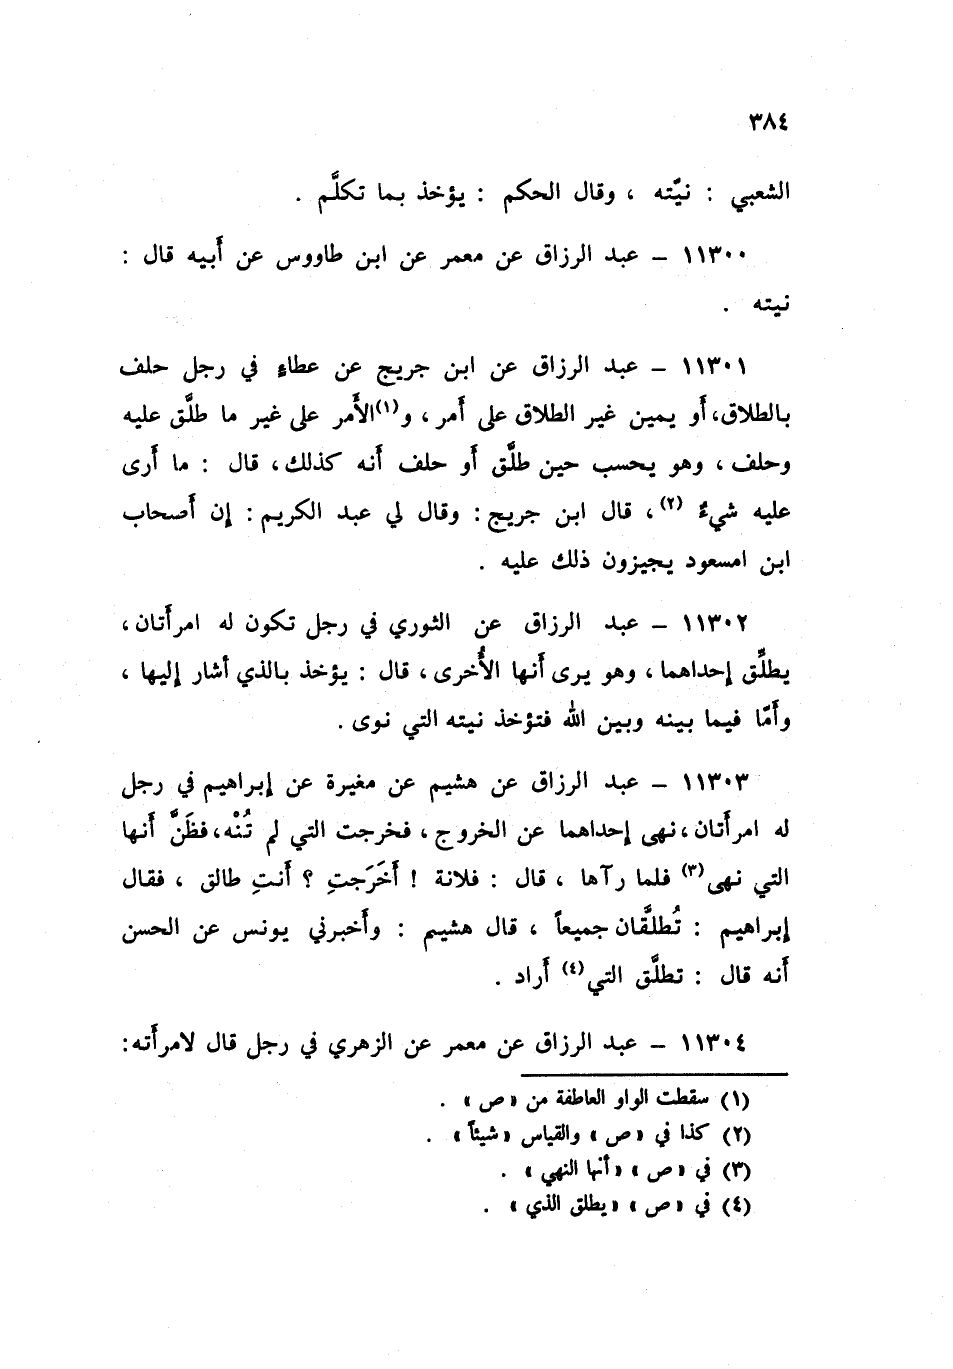 ٣٨٤
الشعبي : نيّته ، وقال الحكم : يؤخذ بما تكلَّم .
١١٣٠٠ – عبد الرزاق عن معمر عن ابن طاووس عن أَبيه قال :
نيته .
١١٣٠١ – عبد الرزاق عن ابن جريج عن عطاءٍ في رجل حلف
بالطلاق، أَو يمين غير الطلاق على أَمر ، و(١)الأَمر على غير ما طلَّق عليه
وحلف ، وهو يحسب حين طلَّق أَو حلف أَنه كذلك ، قال : ما أَرى
عليه شيءٌ (٢) ، قال ابن جريج : وقال لي عبد الكريم : إن أَصحاب
ابن امسعود يجيزون ذلك عليه .
١١٣٠٢ – عبد الرزاق عن الثوري في رجل تكون له امرأَتان ،
يطلِّق إحداهما ، وهو يرى أَنها الأُخرى ، قال : يؤخذ بالذي أشار إليها ،
وأَمّا فيما بينه وبين الله فتؤخذ نيته التي نوى .
١١٣٠٣ – عبد الرزاق عن هشيم عن مغيرة عن إبراهيم في رجل
له امرأَتان ، نهى إحداهما عن الخروج ، فخرجت التي لم تُنْه، فظَنَّ أَنها
التي نهى(٣) فلما رآها ، قال : فلانة ! أَخَرَجتِ ؟ أَنتِ طالق ، فقال
إبراهيم : تُطلَّقان جميعاً ، قال هشيم : وأَخبرني يونس عن الحسن
أَنه قال : تطلَّق التي(٤) أَراد .
١١٣٠٤ – عبد الرزاق عن معمر عن الزهري في رجل قال لامرأَته :
(١) سقطت الواو العاطفة من « ص » .
(٢) كذا في « ص » والقياس « شيئاً » .
(٣) في « ص » « أنها النهي » .
(٤) في « ص » « يطلق الذي » .